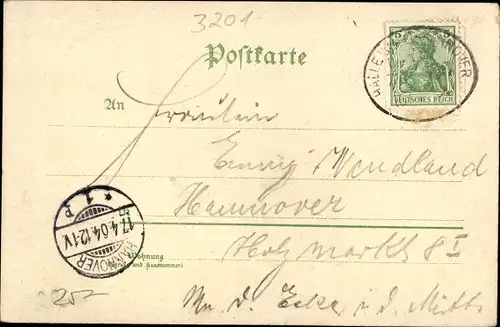 3201
Postkarte
5
DEUTSCHES REICH
HALLE HANNOVER
An Fräulein
Emmy Wendland
Hannover
Holzmarkt 8 I
Wohnung
(Straße und Hausnummer)
HANNOVER
17.4.04.12-1V.
* 1 P
An d. Ecke i. d. Mitte
25-